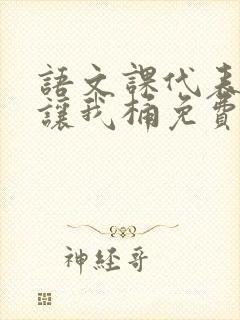 語文課代表
讓我桶免費
神經哥